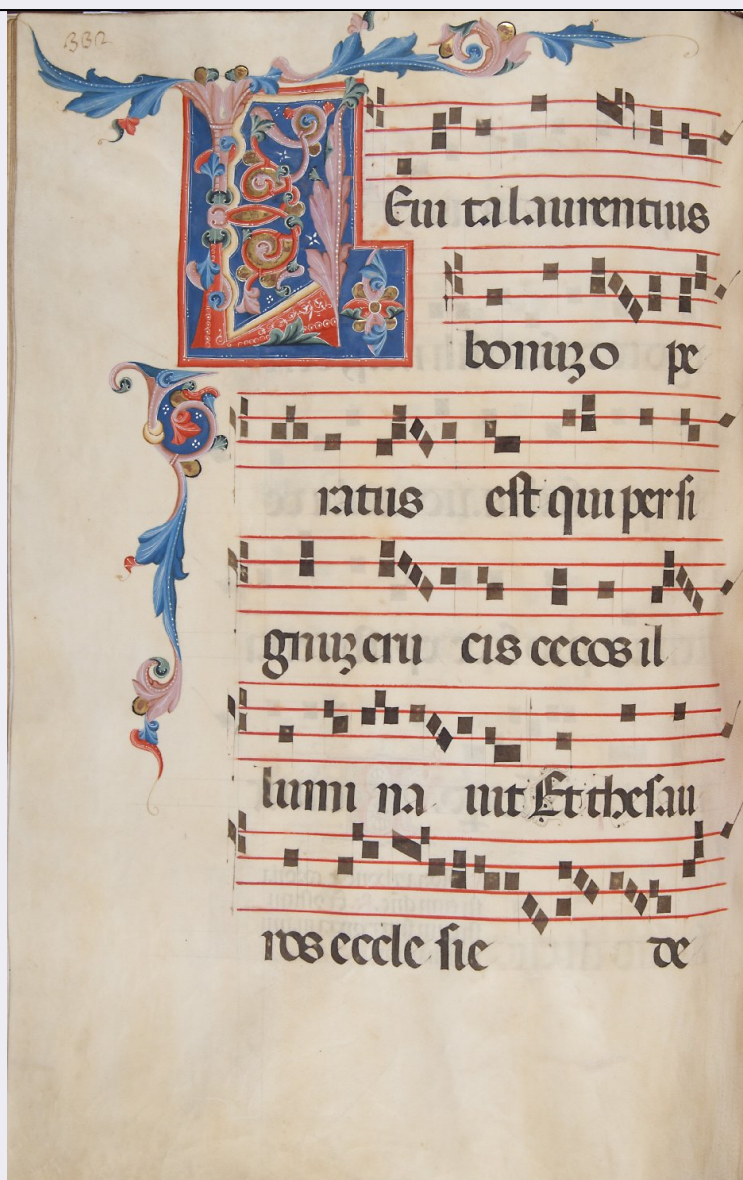 332
LEuita laurentius
bonuȝ o pe
ratus est qui per si
gnuȝ cru cis cecos il
lumi na uit Et thesau
ros eccle sie de